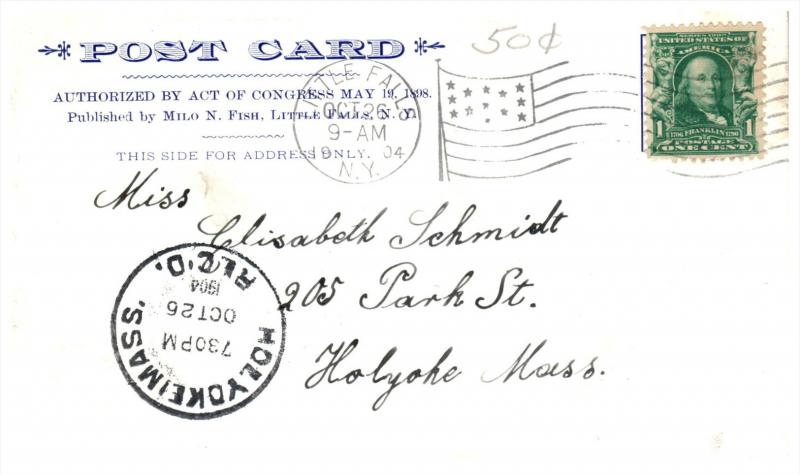 50¢
POST CARD
AUTHORIZED BY ACT OF CONGRESS MAY 19, 1898.
Published by Milo N. Fish, Little Falls, N.
THIS SIDE FOR ADDRESS ONLY.
LITTLE FALLS
OCT 26
9-AM
19 04
N.Y.
SERIES 1902
UNITED STATES OF
AMERICA
1706 FRANKLIN 1790
POSTAGE
1 ONE CENT 1
Miss
Elisabeth Schmidt
205 Park St.
Holyoke Mass.
HOLYOKE, MASS.
730PM
OCT 26
1904
REC'D.